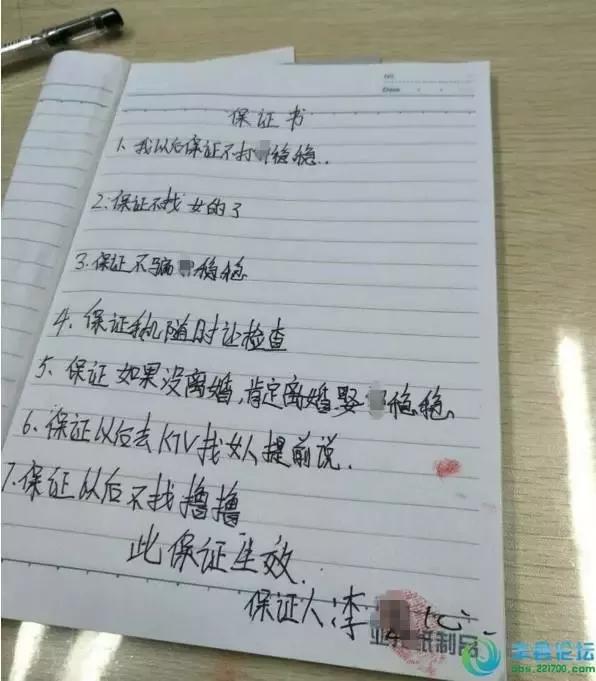 NO.
Date
保证书
1、我以后保证不打稳稳..
2、保证不找女的了
3、保证不骗稳稳
4、保证手机随时让检查
5、保证如果没离婚,肯定离婚娶稳稳
6、保证以后去KTV找女人提前说.
7、保证以后不找撸撸
此保证生效.
保证人:李
纸制品
丰县论坛
bbs.221700.com